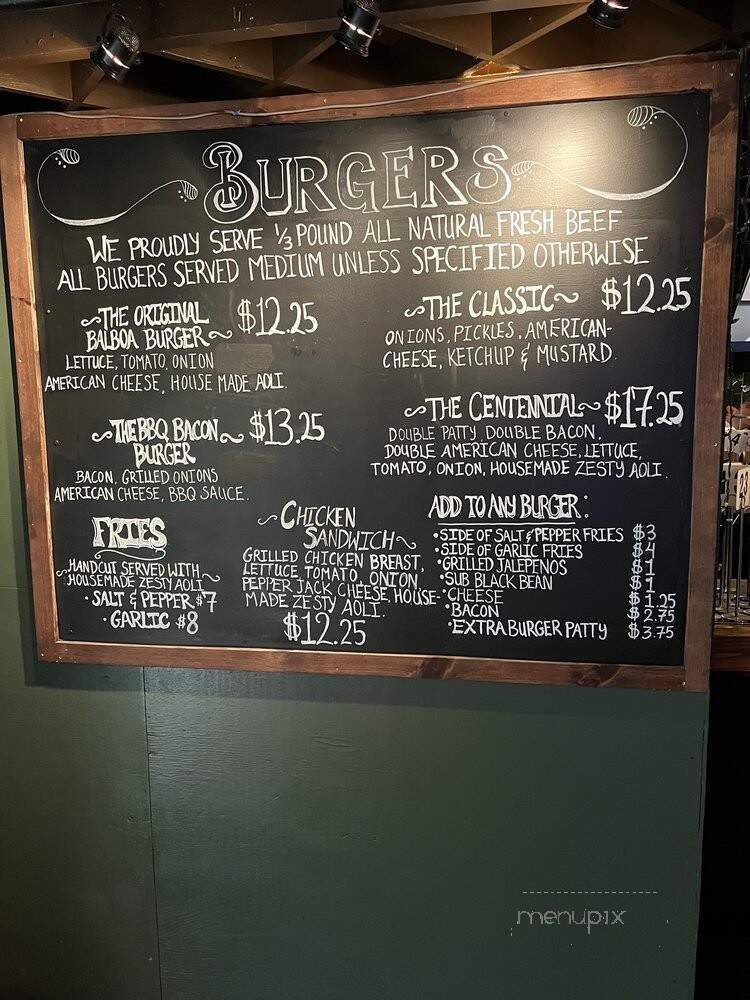 BURGERS
WE PROUDLY SERVE 1/3 POUND ALL NATURAL FRESH BEEF
ALL BURGERS SERVED MEDIUM UNLESS SPECIFIED OTHERWISE
~THE ORIGINAL
BALBOA BURGER~ $12.25
LETTUCE, TOMATO, ONION
AMERICAN CHEESE, HOUSE MADE AOLI.
~THE CLASSIC~ $12.25
ONIONS, PICKLES, AMERICAN-
CHEESE, KETCHUP & MUSTARD.
~THE BBQ BACON~ $13.25
BURGER
BACON, GRILLED ONIONS
AMERICAN CHEESE, BBQ SAUCE.
~THE CENTENNIAL~ $17.25
DOUBLE PATTY, DOUBLE BACON,
DOUBLE AMERICAN CHEESE, LETTUCE,
TOMATO, ONION, HOUSEMADE ZESTY AOLI.
FRIES
~HANDCUT SERVED WITH
HOUSEMADE ZESTY AOLI~
• SALT & PEPPER $7
• GARLIC $8
~CHICKEN
SANDWICH~
GRILLED CHICKEN BREAST,
LETTUCE TOMATO, ONION,
PEPPER JACK CHEESE, HOUSE-
MADE ZESTY AOLI.
$12.25
ADD TO ANY BURGER:
•SIDE OF SALT & PEPPER FRIES $3
•SIDE OF GARLIC FRIES $4
•GRILLED JALEPENOS $1
•SUB BLACK BEAN $1
•CHEESE $1.25
•BACON $2.75
•EXTRA BURGER PATTY $3.75
menupix